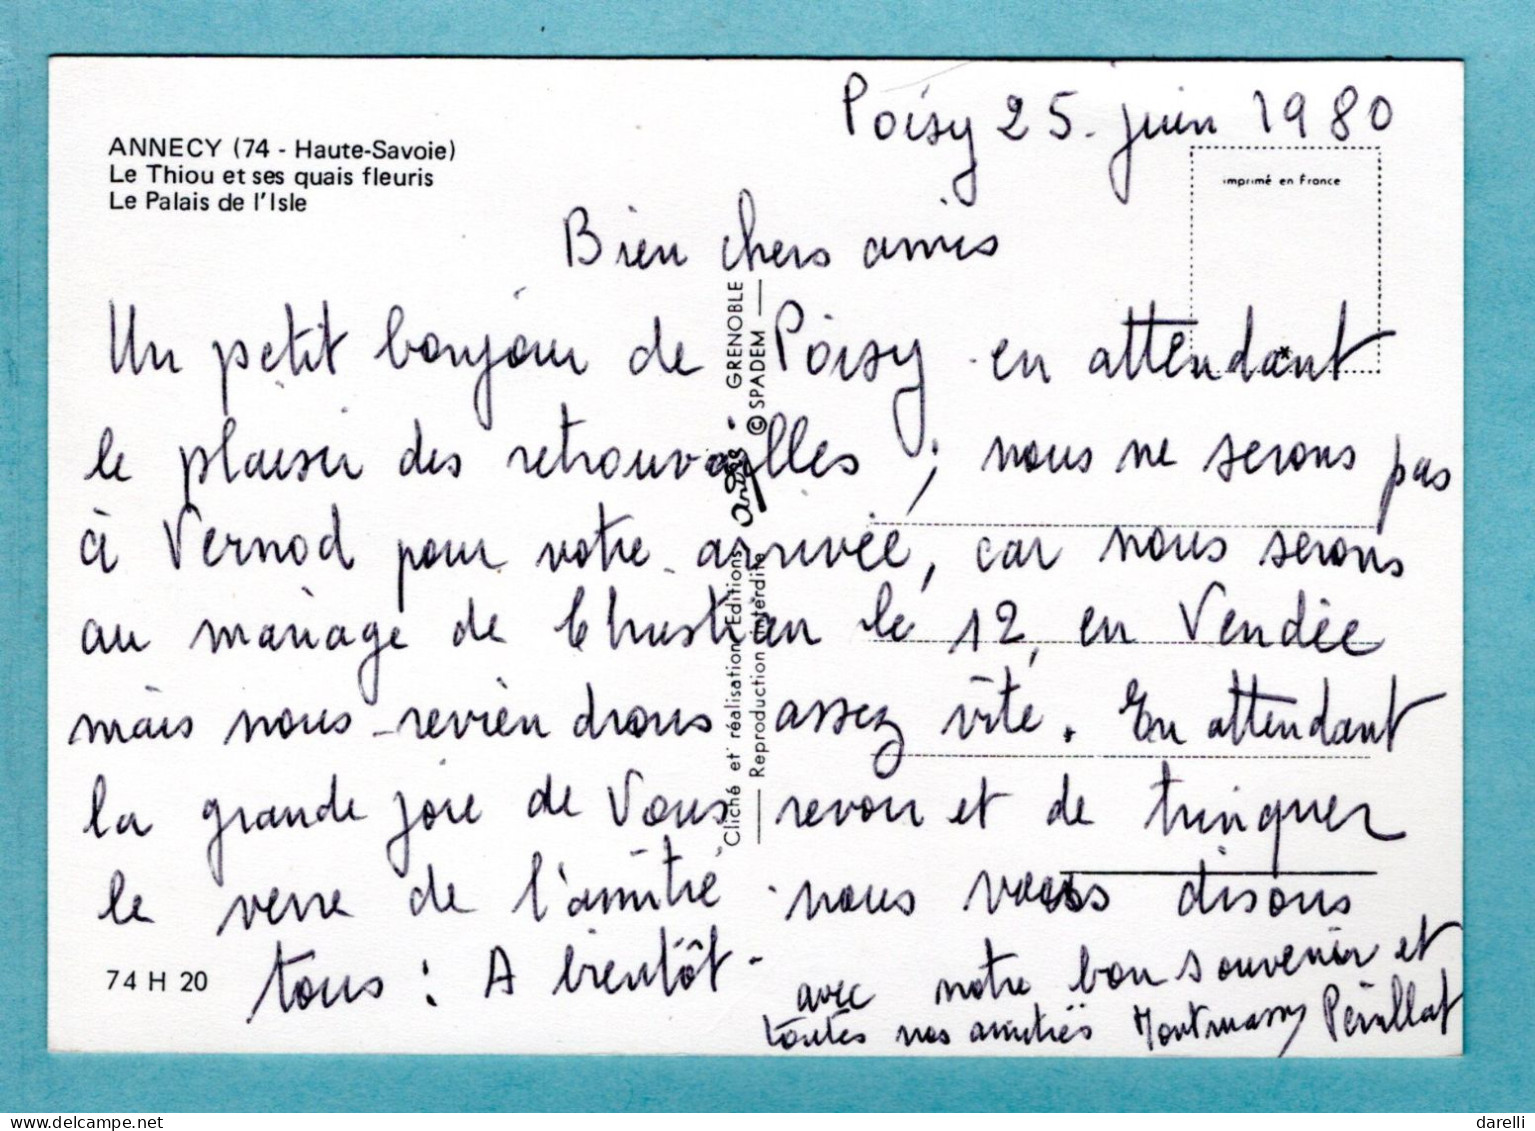 Poisy 25. juin 1980
ANNECY (74 - Haute-Savoie)
Le Thiou et ses quais fleuris
Le Palais de l'Isle
imprimé en France
Bien chers amis
Un petit bonjour de Poisy en attendant
le plaisir des retrouvailles ; nous ne serons pas
à Vernod pour votre arrivée, car nous serons
au mariage de Christian le 12, en Vendée
mais nous reviendrons assez vite. En attendant
la grande joie de Vous revoir et de trinquer
le verre de l'amitié nous vous disons
tous : A bientôt -
avec notre bon souvenir et
toutes nos amitiés Montmasson Périllat
74 H 20
Cliché et réalisation Editions GRENOBLE
Reproduction interdite © SPADEM
delcampe.net
darelli